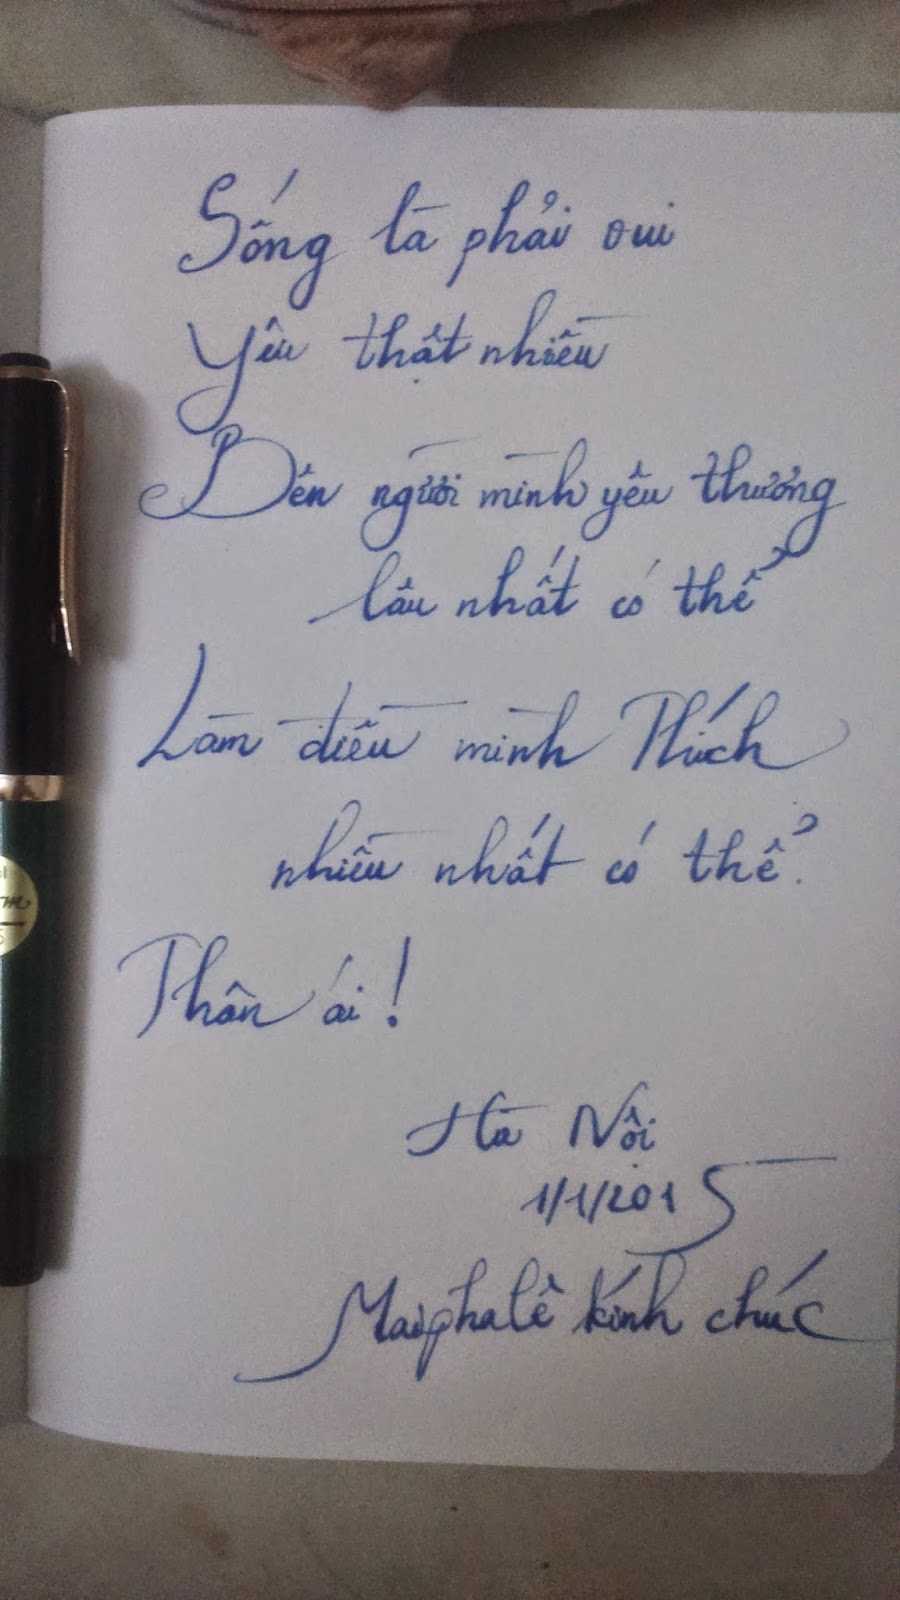 Sống là phải vui
Yêu thật nhiều
Bên người mình yêu thương
lâu nhất có thể
Làm điều mình Thích
nhiều nhất có thể.
Thân ái!
Hà Nội
1/1/2015
Maiphalê kính chúc